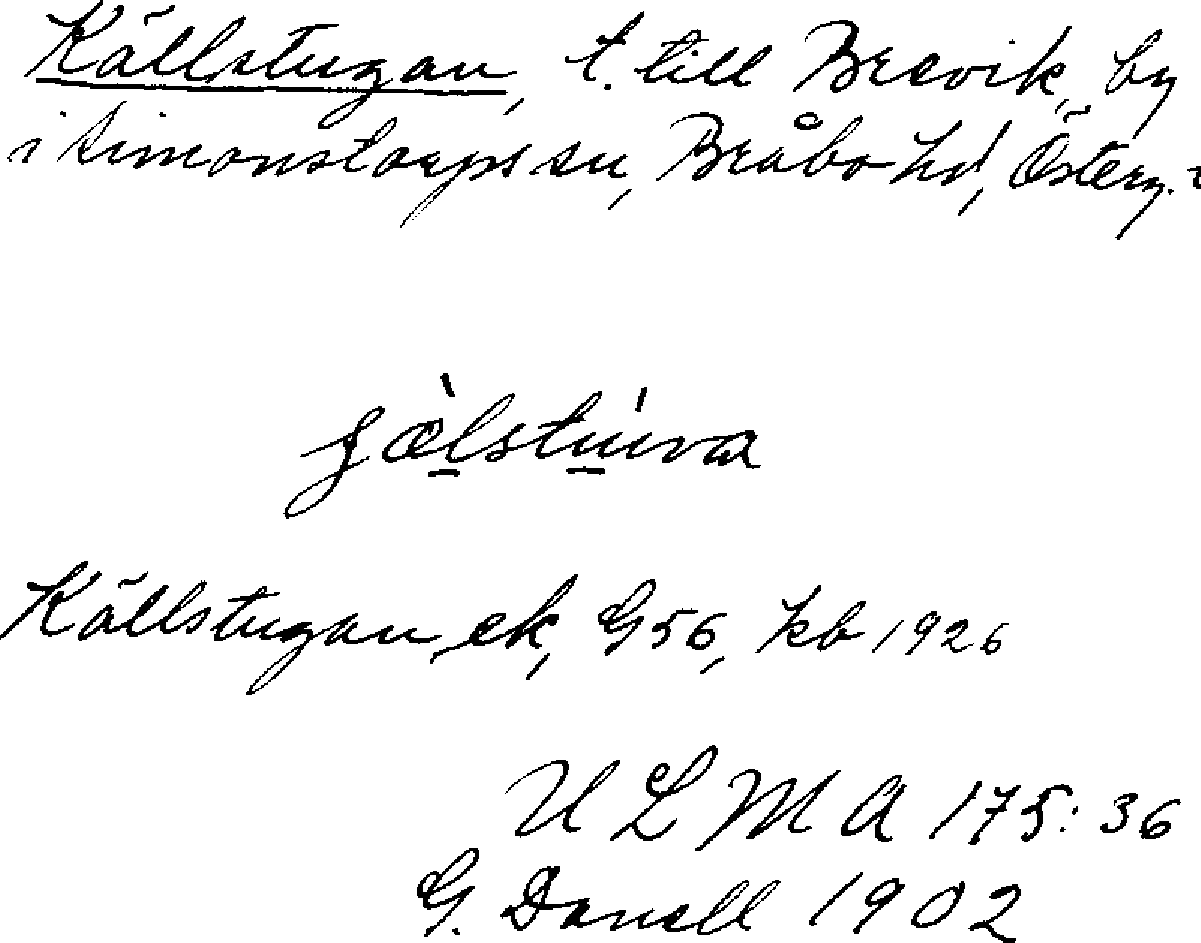 Källstugan, t. till Brevik, by
i Simonstorps sn, Bråbo hd, Österg.
Källstugan, ek, G56, kb 1926
U L M A 175:36
G. Danell 1902